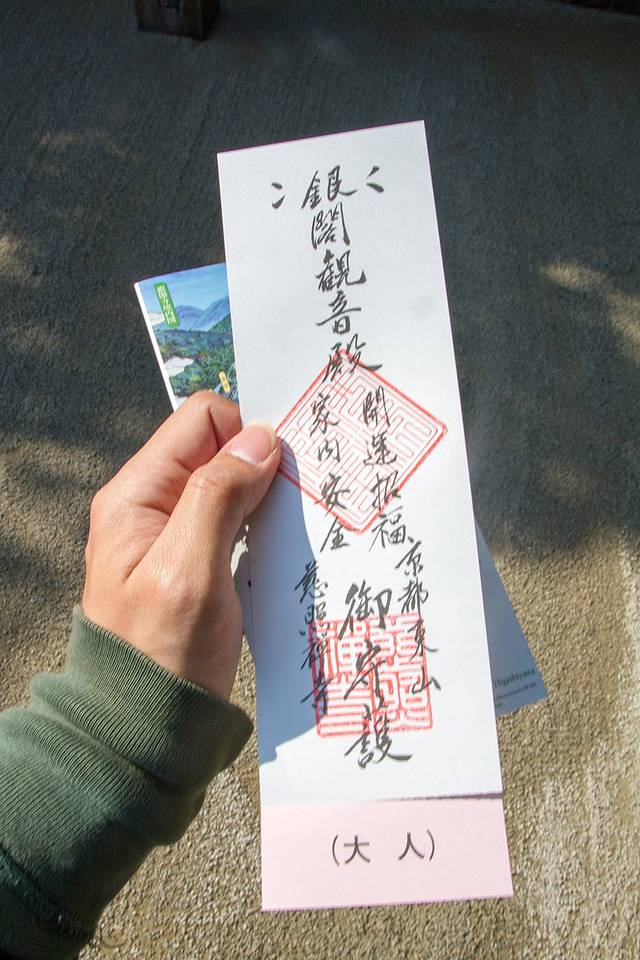 銀閣観音殿
開運招福
家内安全
京都東山
御守護
慈照禅寺
(大 人)
Higashiyama